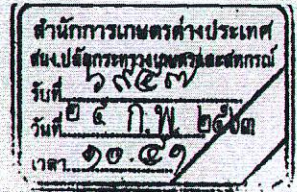 สำนักการเกษตรต่างประเทศ
สนง.ปลัดกระทรวงเกษตรและสหกรณ์
รับที่ ๖๙๔๗
วันที่ ๒๕ ก.พ. ๒๕๖๓
เวลา ๑๐.๔๑